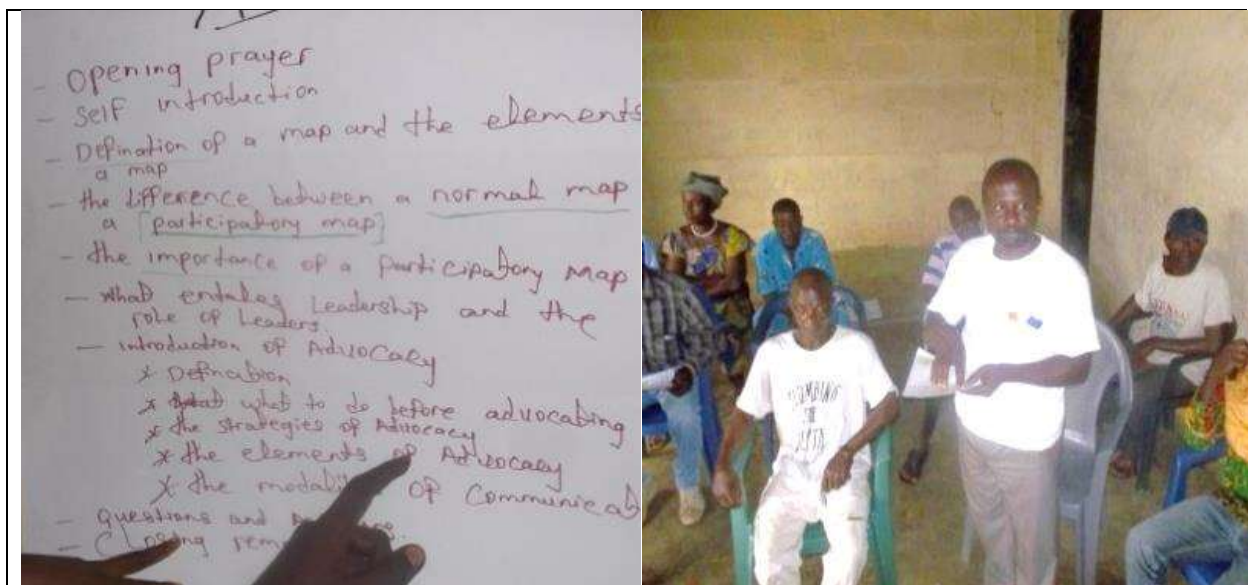 - Opening prayer
- Self introduction
- Defination of a map and the elements
a map
- the difference between a normal map
a [participatory map]
- the importance of a participatory map
- what entales Leadership and the
role of Leaders.
- introduction of Advocacy
* Defination
* what to do before advocating
* the strategies of Advocacy
* the elements of Advocacy
* the of
- Questions and
- Closing
THE